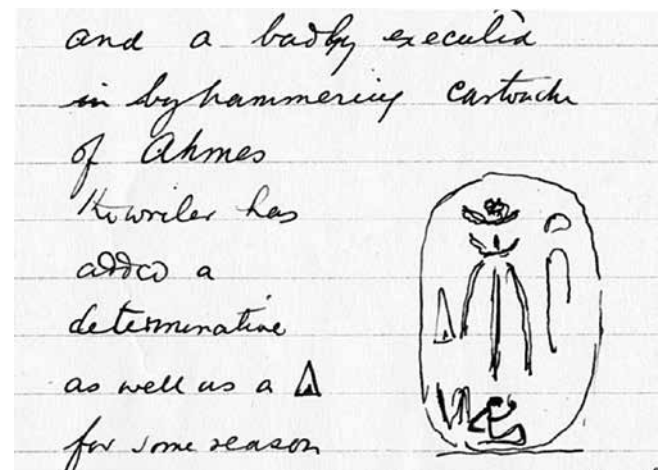 and a badly executed
in by hammering cartouche
of Ahmes
The writer has
added a
determinative
as well as a
for some reason